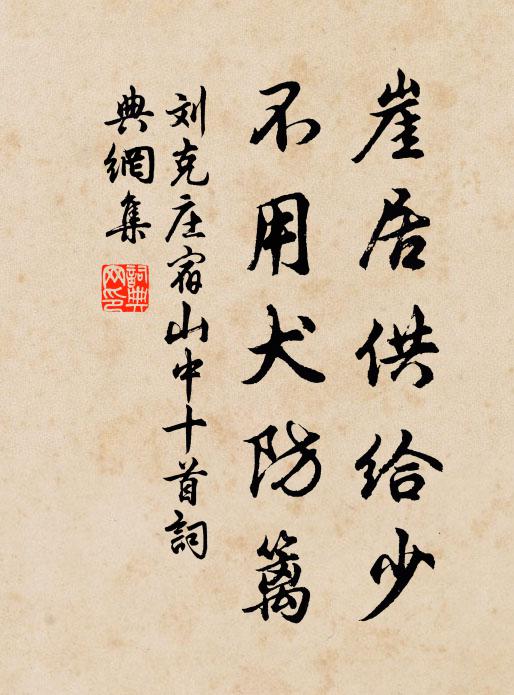 崖居供给少
不用犬防篱
刘克庄宿山中十首詞
典網集
詞典
网印